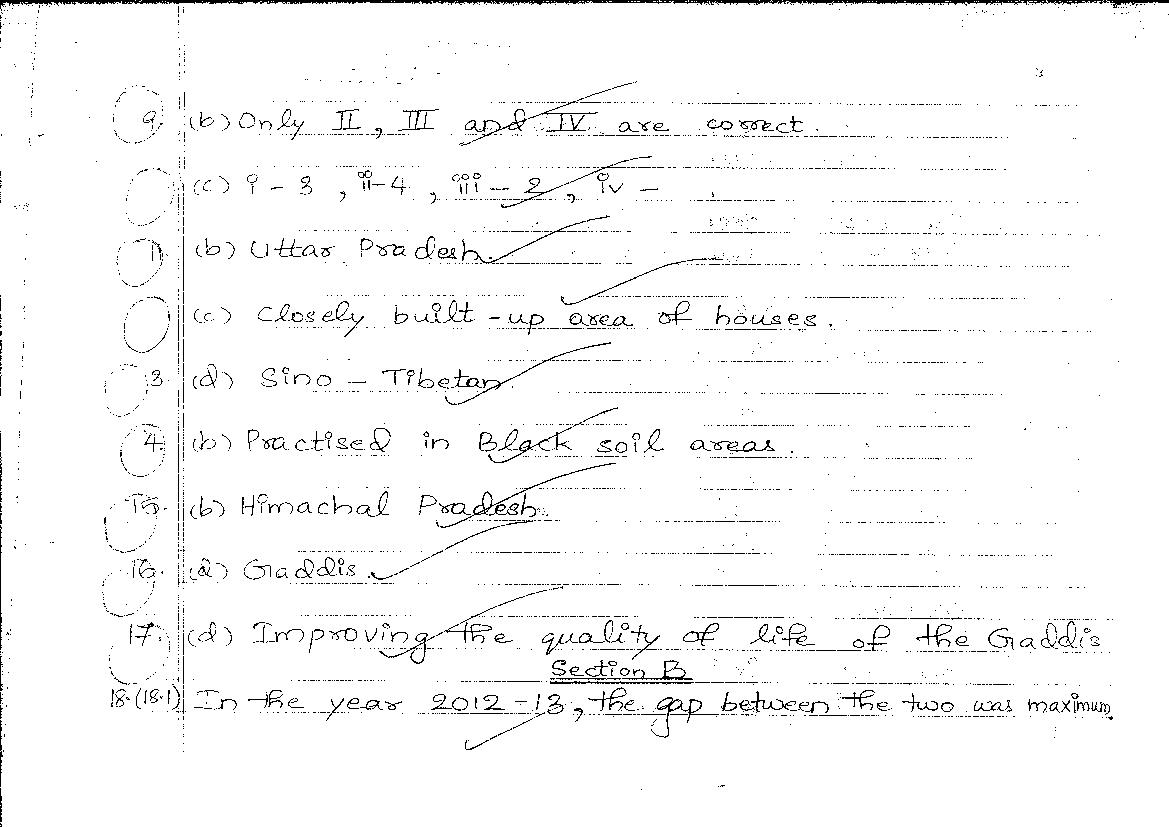 9. (b) Only II, III and IV are correct.
(c) i - 3, ii - 4, iii - 2, iv -
11. (b) Uttar Pradesh.
(c) Closely built-up area of houses.
3. (d) Sino - Tibetan.
4. (b) Practised in Black soil areas.
15. (b) Himachal Pradesh.
16. (a) Gaddis.
17. (d) Improving the quality of life of the Gaddis
Section B
18. (18.1) In the year 2012-13, the gap between the two was maximum.